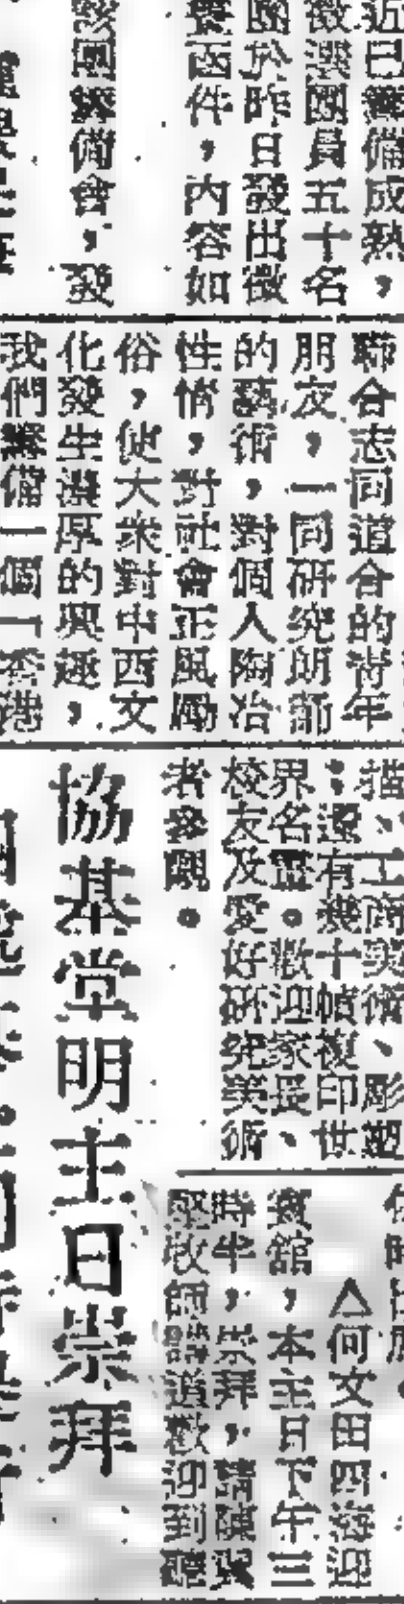 近已籌備成熟，
徵選團員五十名
團於昨日發出徵
函件，內容如
該團籌備會，發
聯合志同道合的青年
朋友，一同研究朗誦
的藝術，對個人陶冶
性情，對社會正風勵
俗，使大衆對中西文
化發生濃厚的興趣，
我們籌備一個
描、工商美術、彫塑
；還有幾十幀複印世
界名畫。歡迎家長、
校友及愛好研究美術
者參觀。
△何文田四海迎
賓館，本主日下午三
時半，崇拜，請陳
牧師講道歡迎到聽
協基堂明主日崇拜